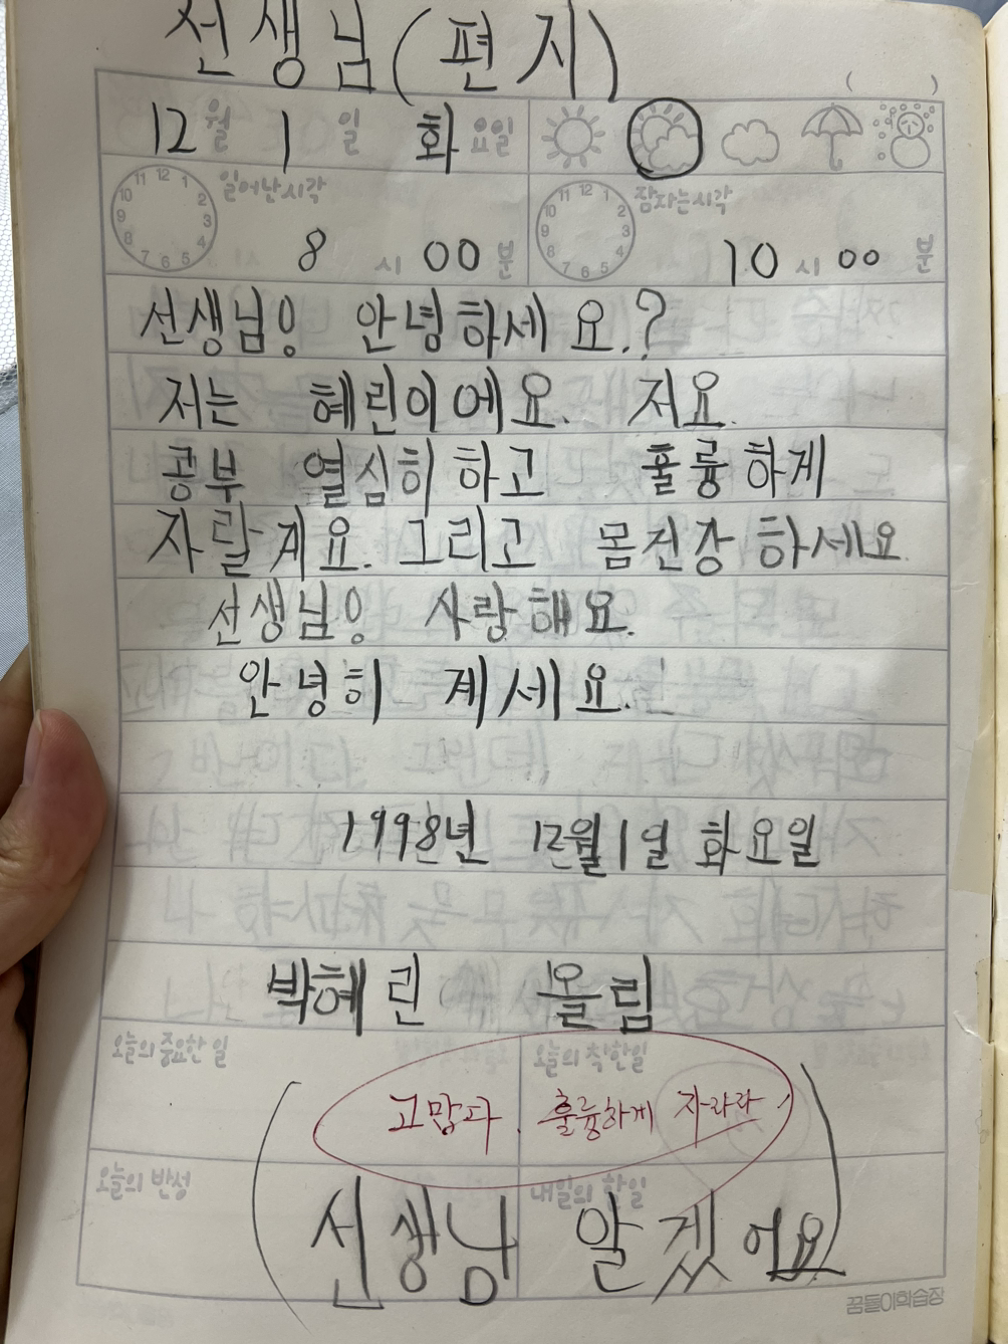 선생님(편지)
( )
12월 1일 화요일
일어난시각 8시 00분 잠자는시각 10시 00분
11 12 1 2 3 4 5 6 7 8 9 10
11 12 1 2 3 4 5 6 7 8 9 10
선생님! 안녕하세요.?
저는 혜린이에요. 저요
공부 열심히 하고 훌륭하게
자랄게요. 그리고 몸건강하세요
선생님! 사랑해요.
안녕히 계세요.
1998년 12월1일 화요일
박혜린 올림
오늘의 중요한 일 오늘의 착한일
고맙다. 훌륭하게 자라라
오늘의 반성 내일의 할일
(선생님 알겠어요)
꿈돌이학습장